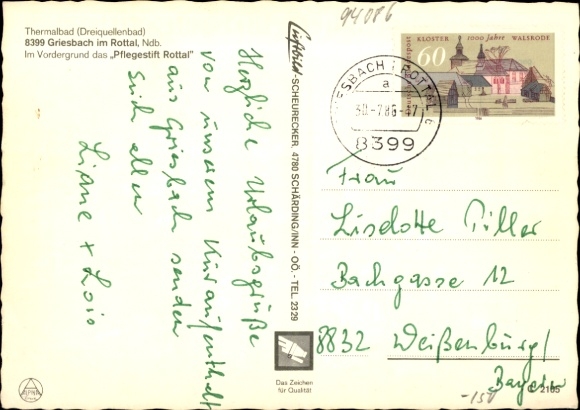 94086
Thermalbad (Dreiquellenbad)
8399 Griesbach im Rottal, Ndb.
Im Vordergrund das „Pflegestift Rottal"
Herzliche Urlaubsgrüße
von unserem Kuraufenthalt
aus Griesbach senden
Euch allen
Liane + Lois
Luftbild-SCHEURECKER, 4780 SCHÄRDING/INN - OÖ. - TEL. 2329
KLOSTER 1000 Jahre WALSRODE
60
GRIESBACH i ROTTAL
a
30.-7.86.-17
8399
Frau
Liselotte Piller
Bachgasse 12
8832 Weißenburg/
Bayern
Das Zeichen
für Qualität
2105
-150